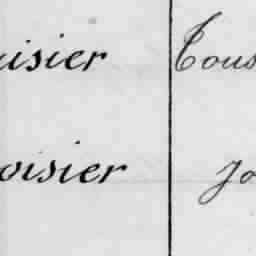 uisier Tous
oisier Jo